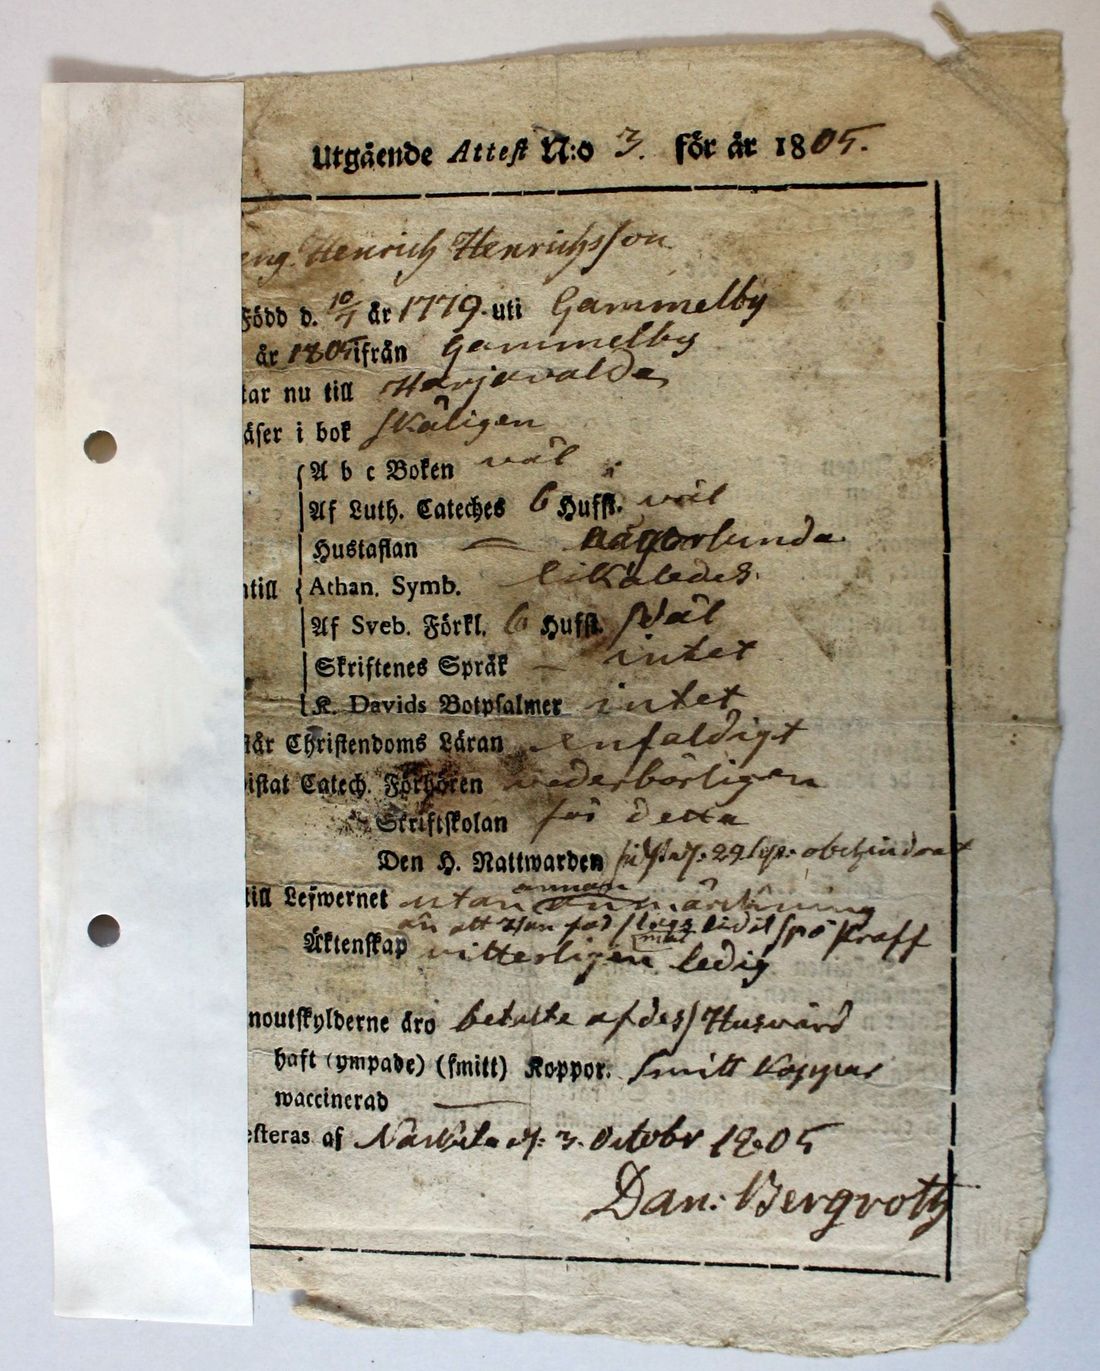 Utgående Attest N:o 3. för år 1805.
eng. Henrich Henrichsson
Född d. 10/7 år 1779. uti Gammelby
år 1805 ifrån Gammelby
tar nu till Harjavalda
äser i bok skäligen
A b c Boken väl
Af Luth. Cateches 6 Hufst. väl
Hustaflan — någorlunda
ntill Athan. Symb. likaledes.
Af Sveb. Förkl. 6 Hufst. väl
Skriftenes Språk – intet
K. Davids Botpsalmer intet
tår Christendoms Läran enfaldigt
istat Catech. Förhören vederbörligen
Skriftskolan för detta
Den H. Nattwarden sidst d. 29 obehindrat
till Lefwernet utan annan anmärkning
än att Han för lidit spö straff
Äktenskap vitterligen ledig
noutskylderne äro betalte af dess Husvärd
haft (ympade) (smitt) Koppor. Smitt Koppor
waccinerad —
esteras af Nakkila d. 3. Octobr 1805
Dan: Bergroth